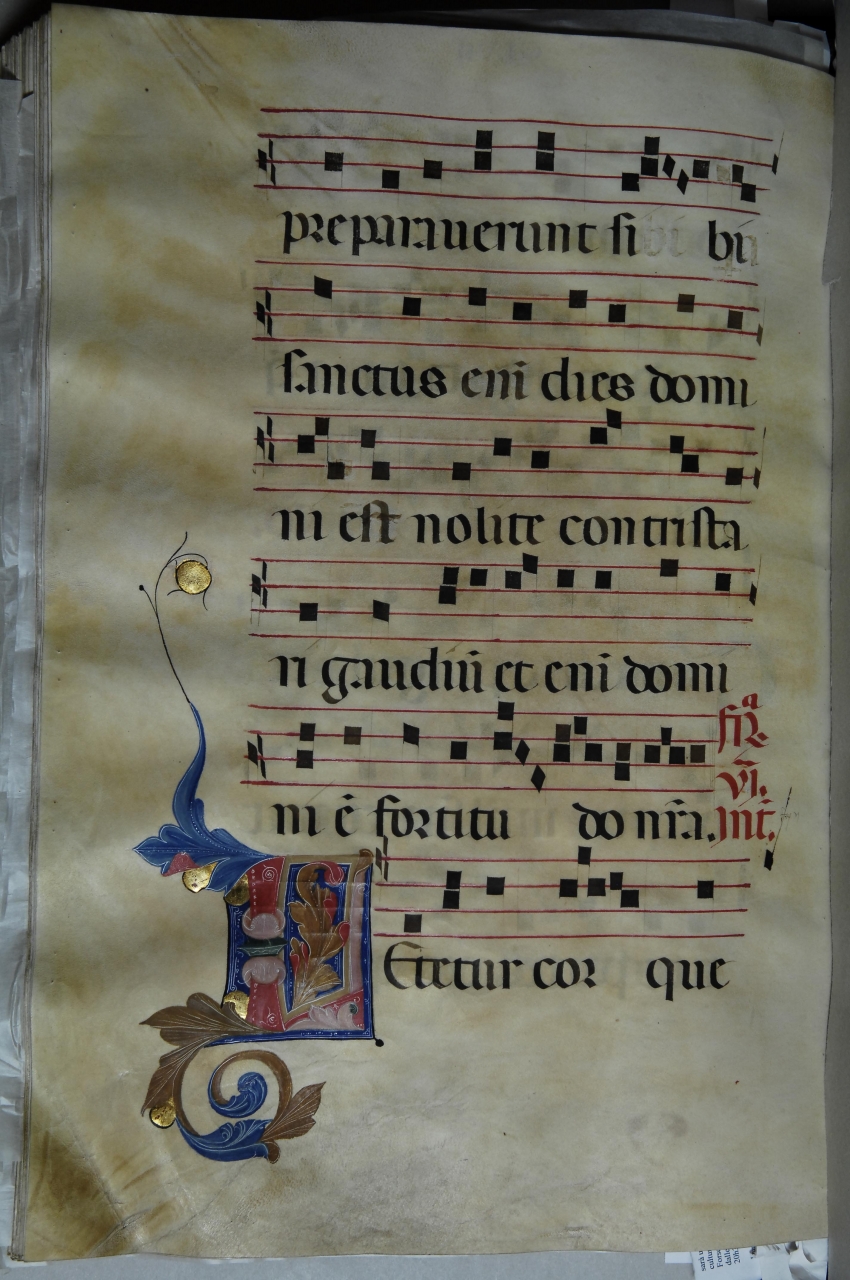 preparauerunt si bi
sanctus enī dies domi
ni est nolite contrista
ri gaudiū et enī domi
ni ē fortitu do nr̄a.
fr̄ᵃ
VI.
Int̄.
Letetur cor que